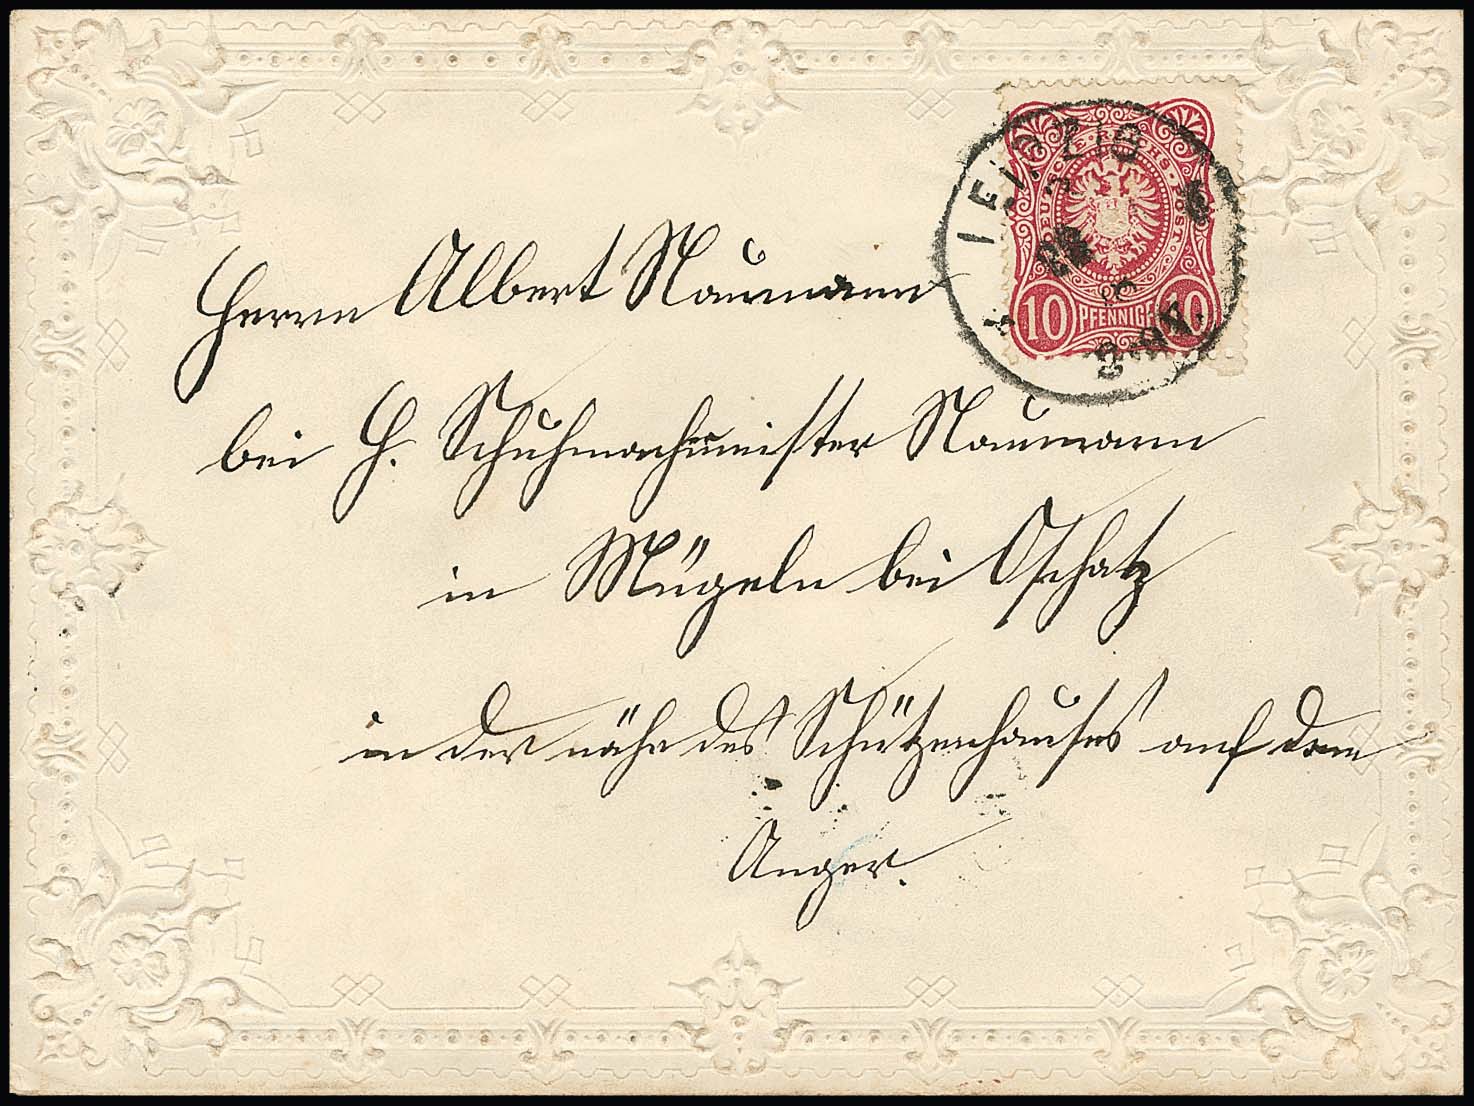 LEIPZIG
DEUTSCHE REICHS-POST
10 PFENNIG 10
Herrn Albert Naumann
bei H. Schuhmachermeister Naumann
in Mügeln bei Oschatz
in der nähe des Schützenhauses auf dem
Anger.